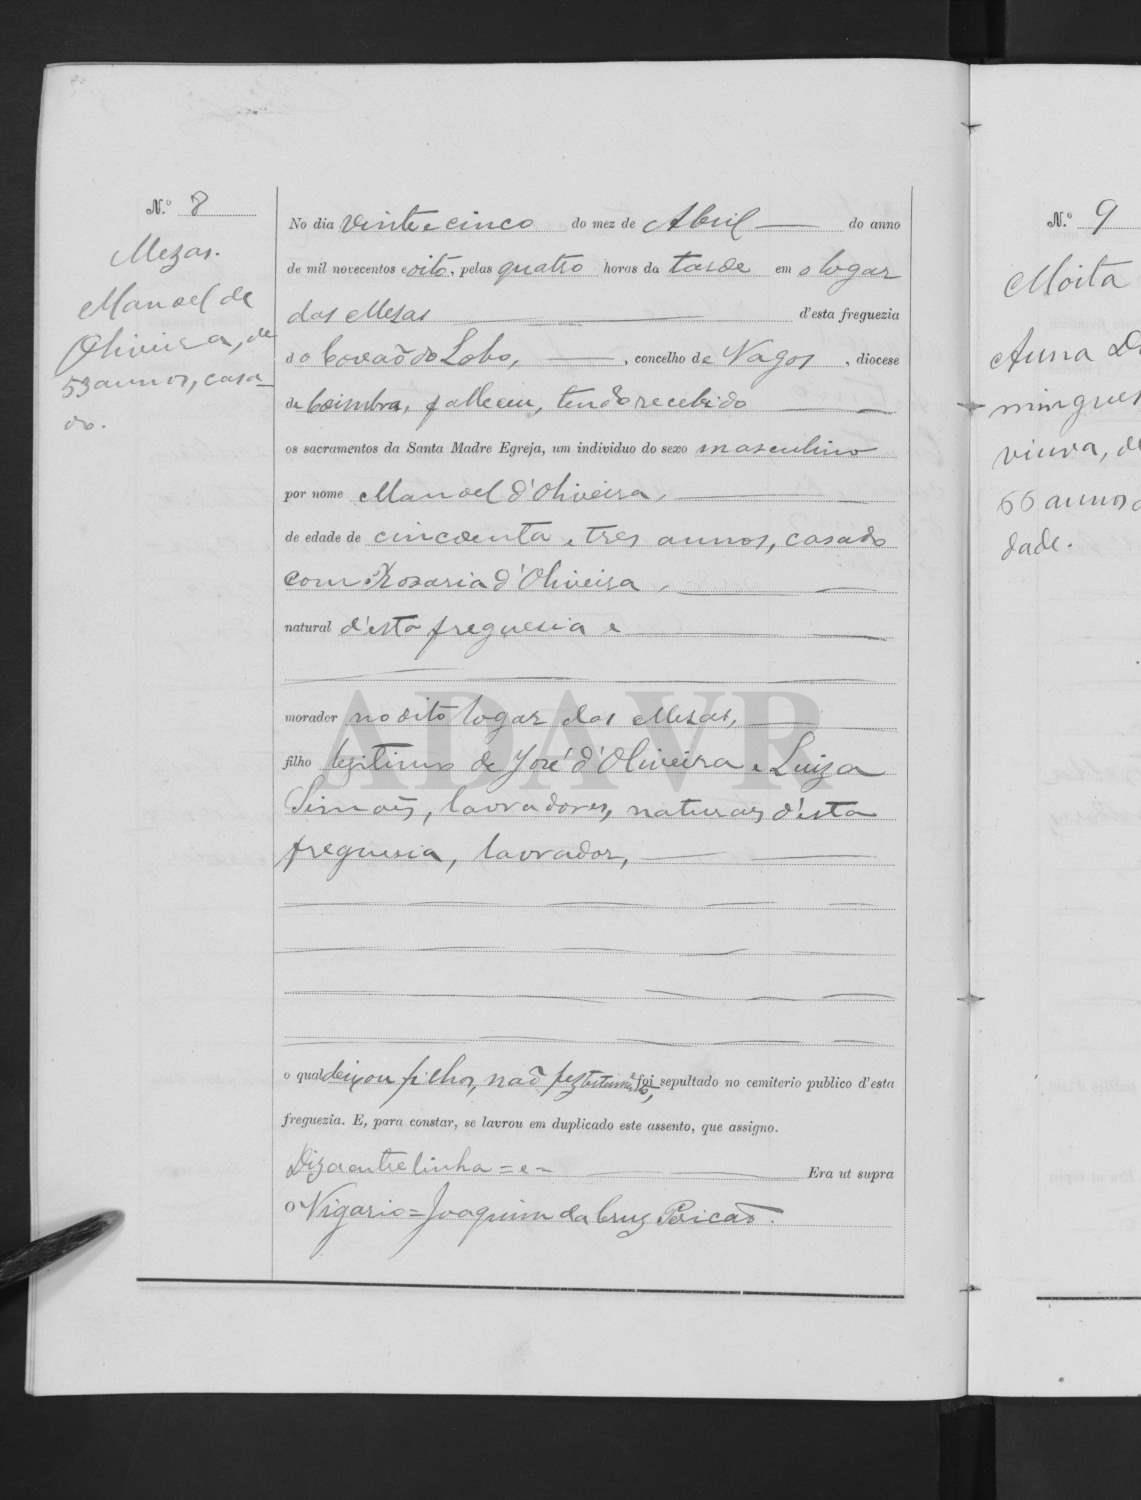 N.º 8
Mezas.
Manoel de
Oliveira, de
53 annos, casa-
do.
No dia vinte e cinco do mez de Abril do anno
de mil novecentos e oito, pelas quatro horas da tarde em o logar
das Mezas d'esta freguezia
do Covão do Lobo, concelho de Vagos, diocese
de Coimbra, falleceu, tendo recebido
os sacramentos da Santa Madre Egreja, um individuo do sexo masculino
por nome Manoel d'Oliveira,
de edade de cincoenta e tres annos, casado
com Rosaria d'Oliveira,
natural d'esta freguesia e
morador no dito logar das Mezas,
filho legitimo de José d'Oliveira e Luiza
Simões, lavradores, naturaes d'esta
freguesia, lavrador,
o qual deixou filhos, não fez testamento, e foi sepultado no cemiterio publico d'esta
freguezia. E, para constar, se lavrou em duplicado este assento, que assigno.
Diz a entrelinha = e = Era ut supra
O Vigario = Joaquim da Cruz Pericão.
ADAVR
N.º 9
Moita
Anna Do
mingues
viuva, de
66 annos d
dade.